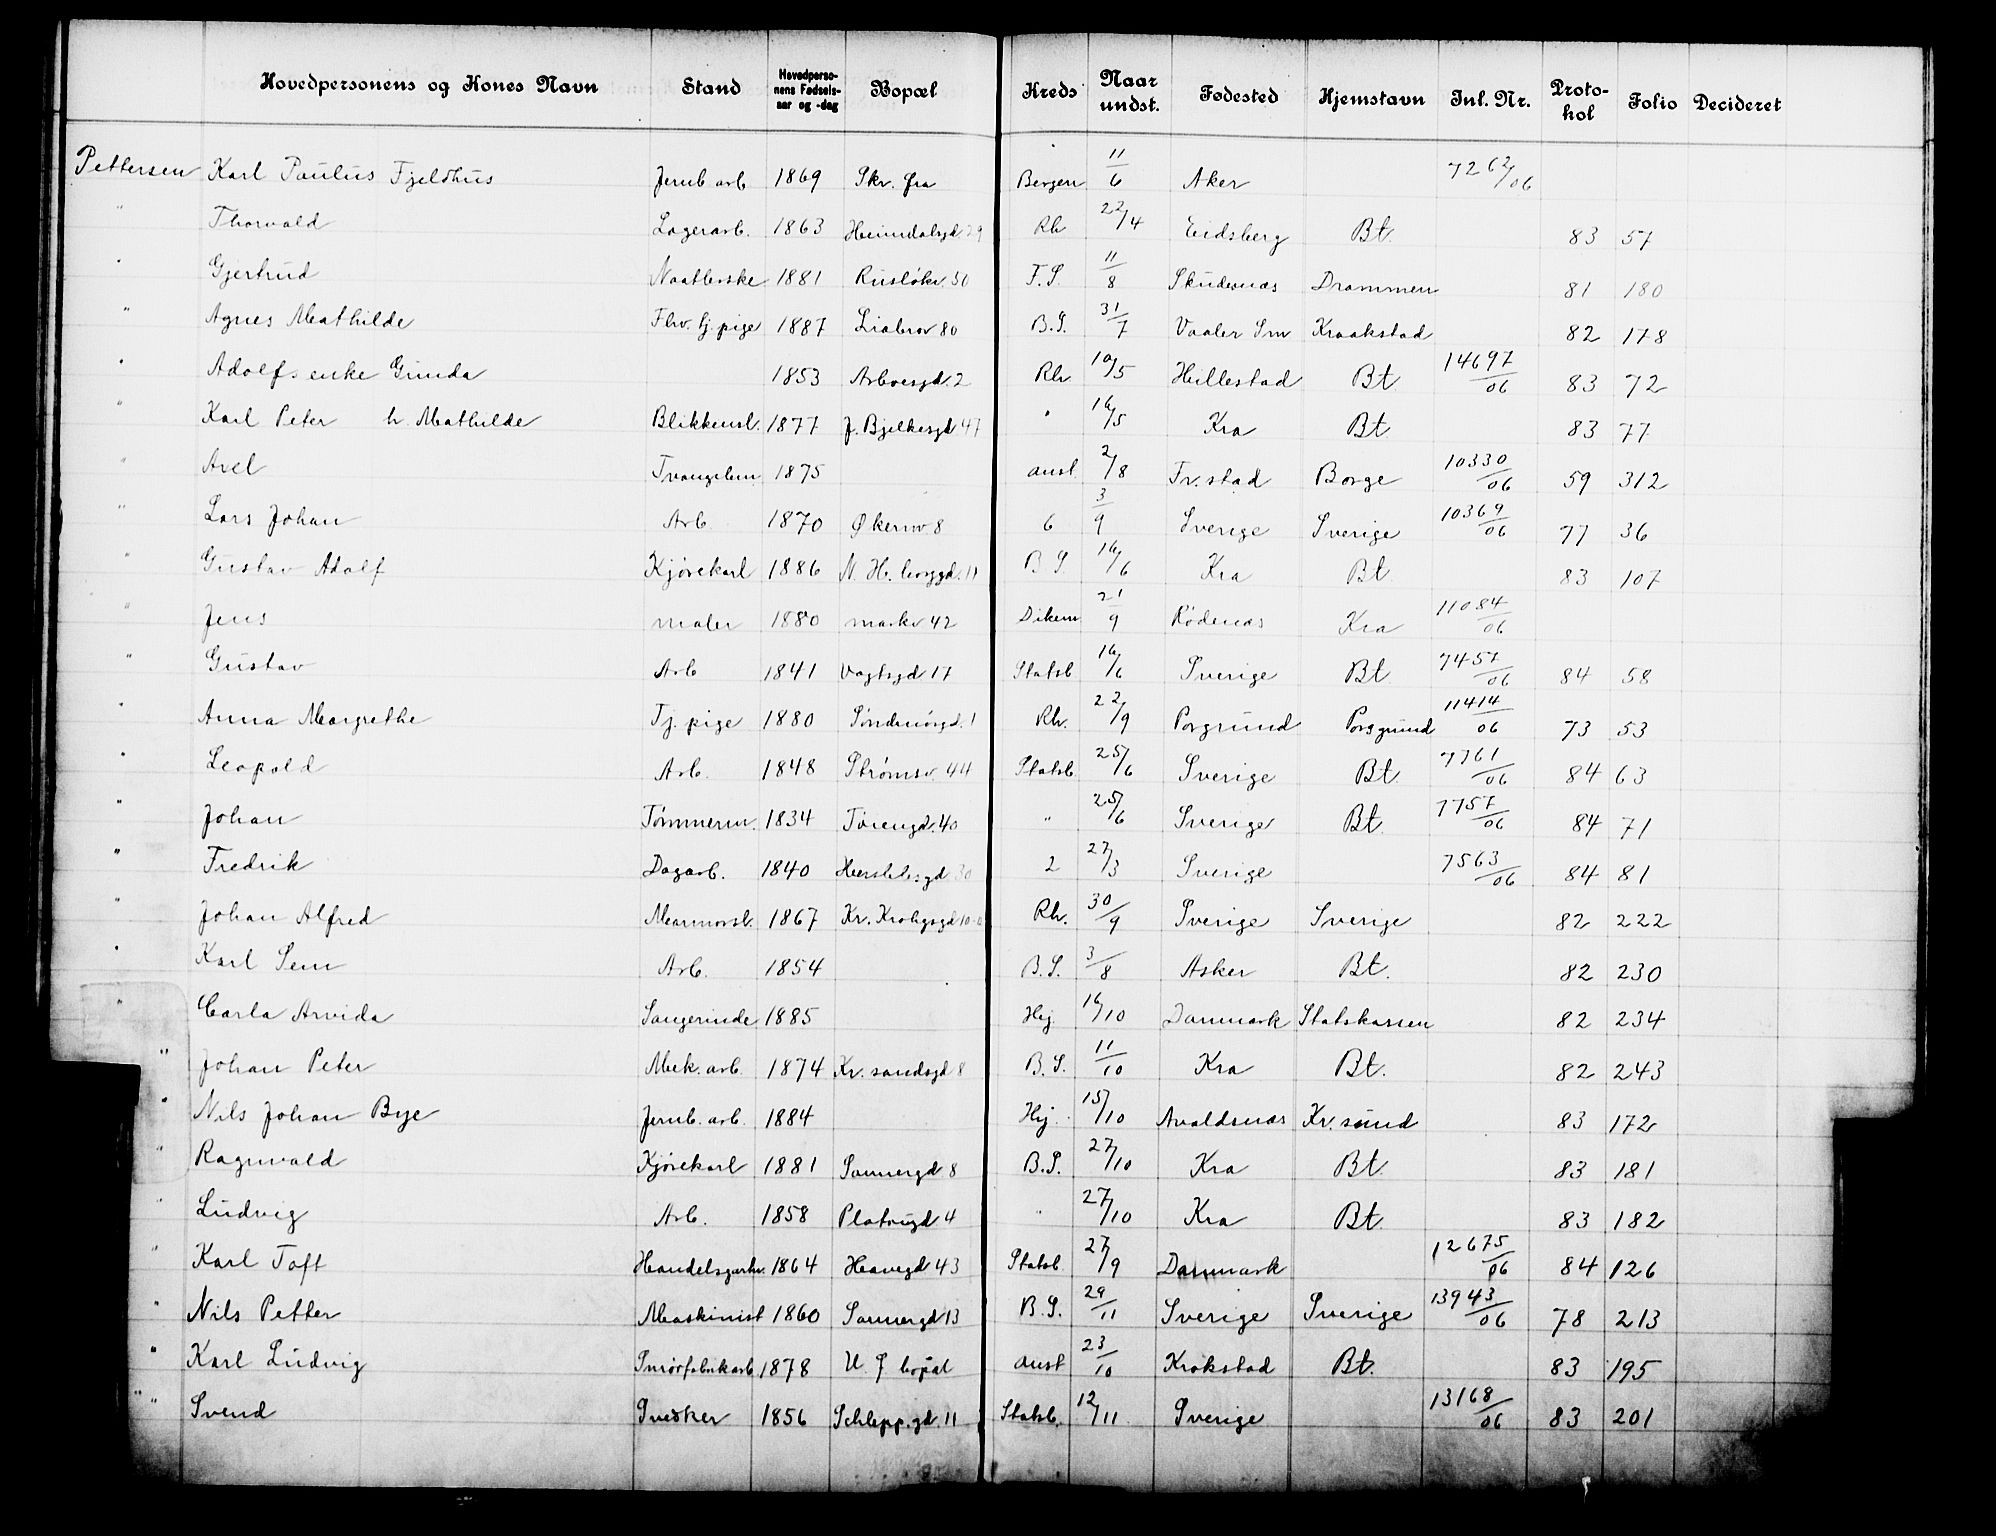 Hovedpersonens og Kones Navn Stand Hovedperso-nens Fødsels-aar og -dag Bopæl Kreds Naar undst. Fødested Hjemstavn Inl. Nr. Proto-kol Folio Decideret
Pettersen Karl Paulus Fjeldhus Jernb. arb 1869 Skr. fra Bergen 11/6 Aker 7262/06
" Thorvald Lagerarb. 1863 Heimdalsgd. 29 Rh 22/4 Eidsberg Bt. 83 57
" Gjertrud 1881 Rusløkv. 50 F.S. 11/8 Skudenæs Drammen 81 180
" Agnes Mathilde Fhv. tj. pige 1887 Liabrov 80 B.S. 31/7 Vaaler Sm Kraakstad 82 178
" Adolfs enke Gunda 1853 Arboesgd. 2 Rh 10/5 Hillestad Bt 14697/06 83 72
" Karl Peter h. Mathilde Blikkensl. 1877 J. Bjelkesgd 47 " 16/5 Kra Bt 83 77
" Axel Tvangslem 1875 anst. 2/8 Fr.stad Borge 10330/06 59 312
" Lars Johan Arb. 1870 Økernv 8 6 3/9 Sverige Sverige 10369/06 77 36
" Gustav Adolf Kjørekarl 1886 N. H. borggd. 11 B S. 16/6 Kra Bt 83 107
" Jens maler 1880 markv 42 Dikem 21/9 Rødenæs Kra 11084/06
" Gustav Arb 1841 Vogtsgd 17 Statsb 16/6 Sverige Bt 7457/06 84 58
" Anna Margrethe Tj. pige 1880 Søndenørgd. 1 Rh. 22/9 Porgrund Porsgrund 11414/06 73 53
" Leopold Arb. 1848 Strømsv. 44 Statsb. 25/6 Sverige Bt. 7761/06 84 63
" Johan Tømmerm. 1834 Tøiengd. 40 " 25/6 Sverige Bt. 7757/06 84 71
" Fredrik Dagarb. 1840 Herslebsgd 30 2 27/3 Sverige 7563/06 84 81
" Johan Alfred Marmorsl. 1867 Kr. Krohgsgd 10 Rh. 30/9 Sverige Sverige 82 222
" Karl Sem Arb. 1854 B.S. 3/8 Asker Bt. 82 230
" Carla Arvida Sangerinde 1885 Hj. 16/10 Danmark Statskassen 82 234
" Johan Peter Mek. arb. 1874 Kr. sandsgd 8 B.S. 11/10 Kra Bt. 82 243
" Nils Johan Bye Jernb. arb. 1884 Hj. 15/10 Avaldsnæs Kr. sund 83 172
" Ragnvald Kjørekarl 1881 Sannergd 8 B.S. 27/10 Kra Bt. 83 181
" Ludvig Arb. 1858 Platougd 4 " 27/10 Kra Bt 83 182
" Karl Toft Handelsgartn. 1864 Havegd 43 Statsb. 27/9 Danmark 12675/06 84 126
" Nils Petter Maskinist 1860 Sannergd 13 B.S. 29/11 Sverige Sverige 13943/06 78 213
" Karl Ludvig Smørfabrikarb. 1878 U. f bopæl anst 23/10 Krokstad Bt. 83 195
" Svend Snedker 1856 Schlepp.gd. 11 Statsb. 12/11 Sverige 13168/06 83 201